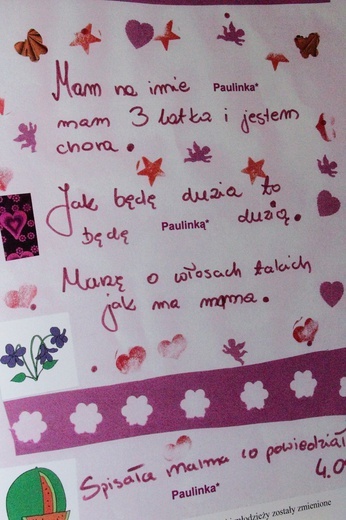 Mam na imie Paulinka*
mam 3 latka i jestem
chora.
Jak będę duzia to
będę Paulinką* duzią.
Marzę o włosach takich
jak ma mama.
Spisała mama co powiedział
Paulinka* 4.0
młodzieży zostały zmienione